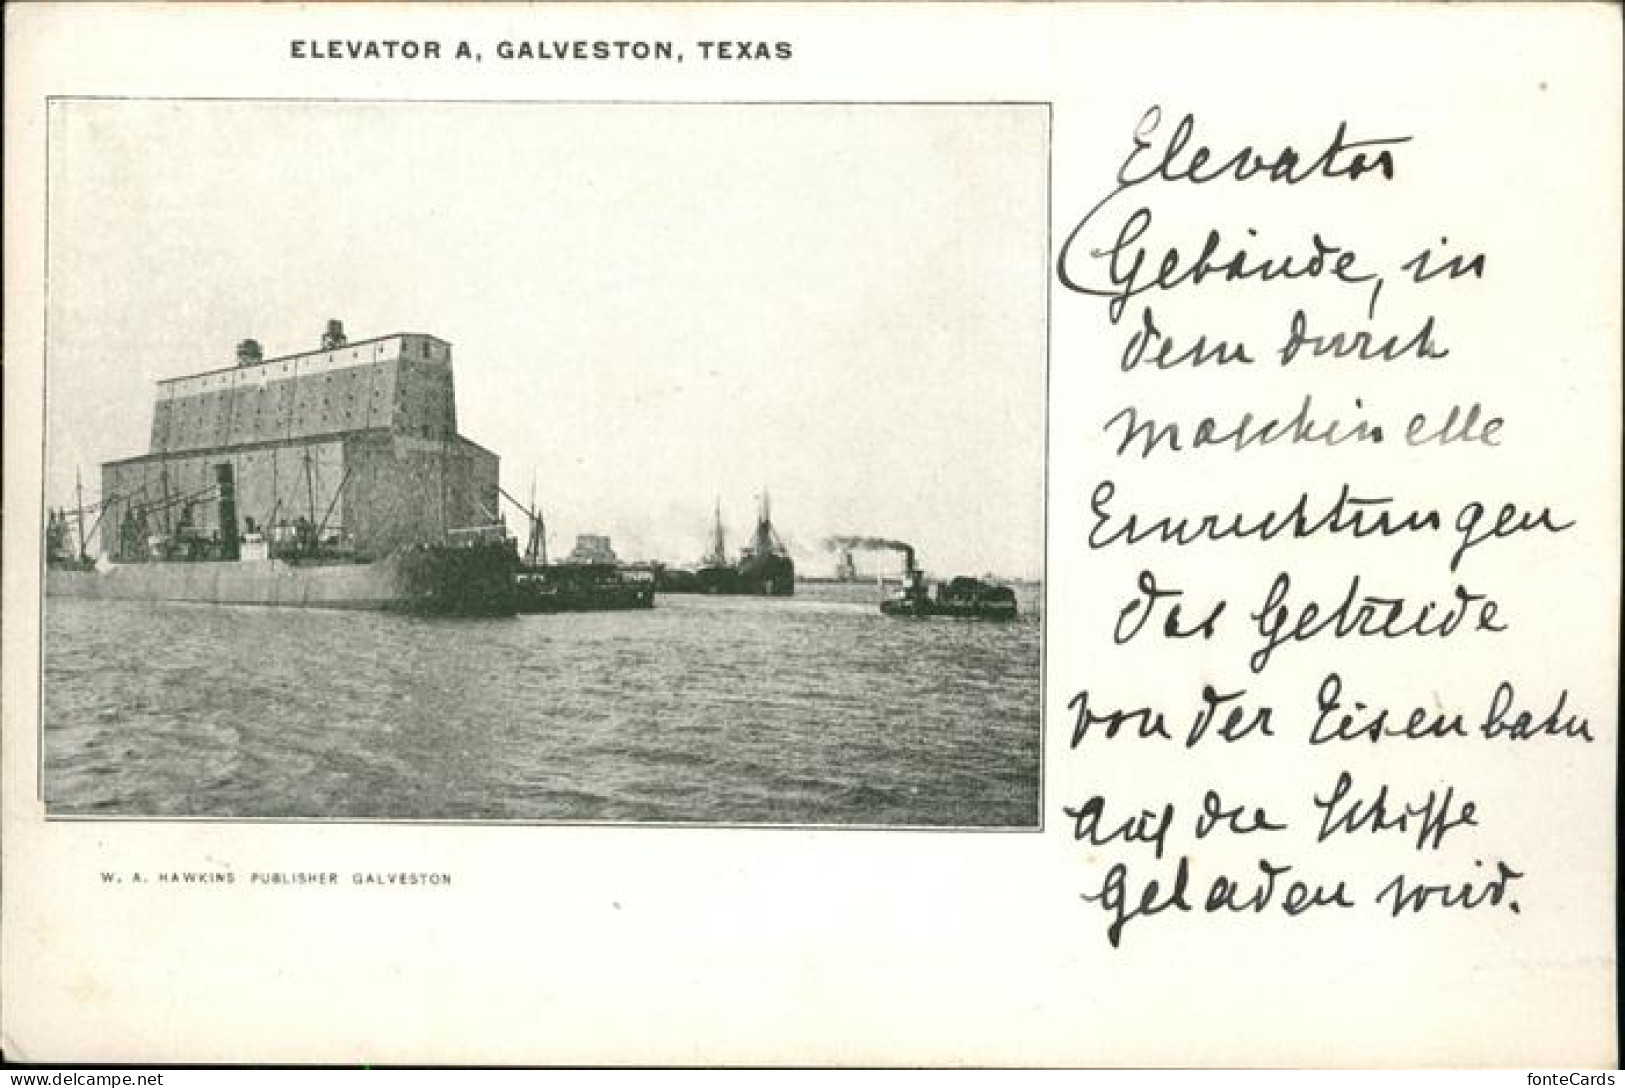 ELEVATOR A, GALVESTON, TEXAS
Elevator
Gebäude, in
dem durch
maschinelle
Einrichtungen
das Getreide
von der Eisenbahn
auf die Schiffe
geladen wird.
W. A. HAWKINS PUBLISHER GALVESTON
www.delcampe.net/en_US/collectibles
fonteCards